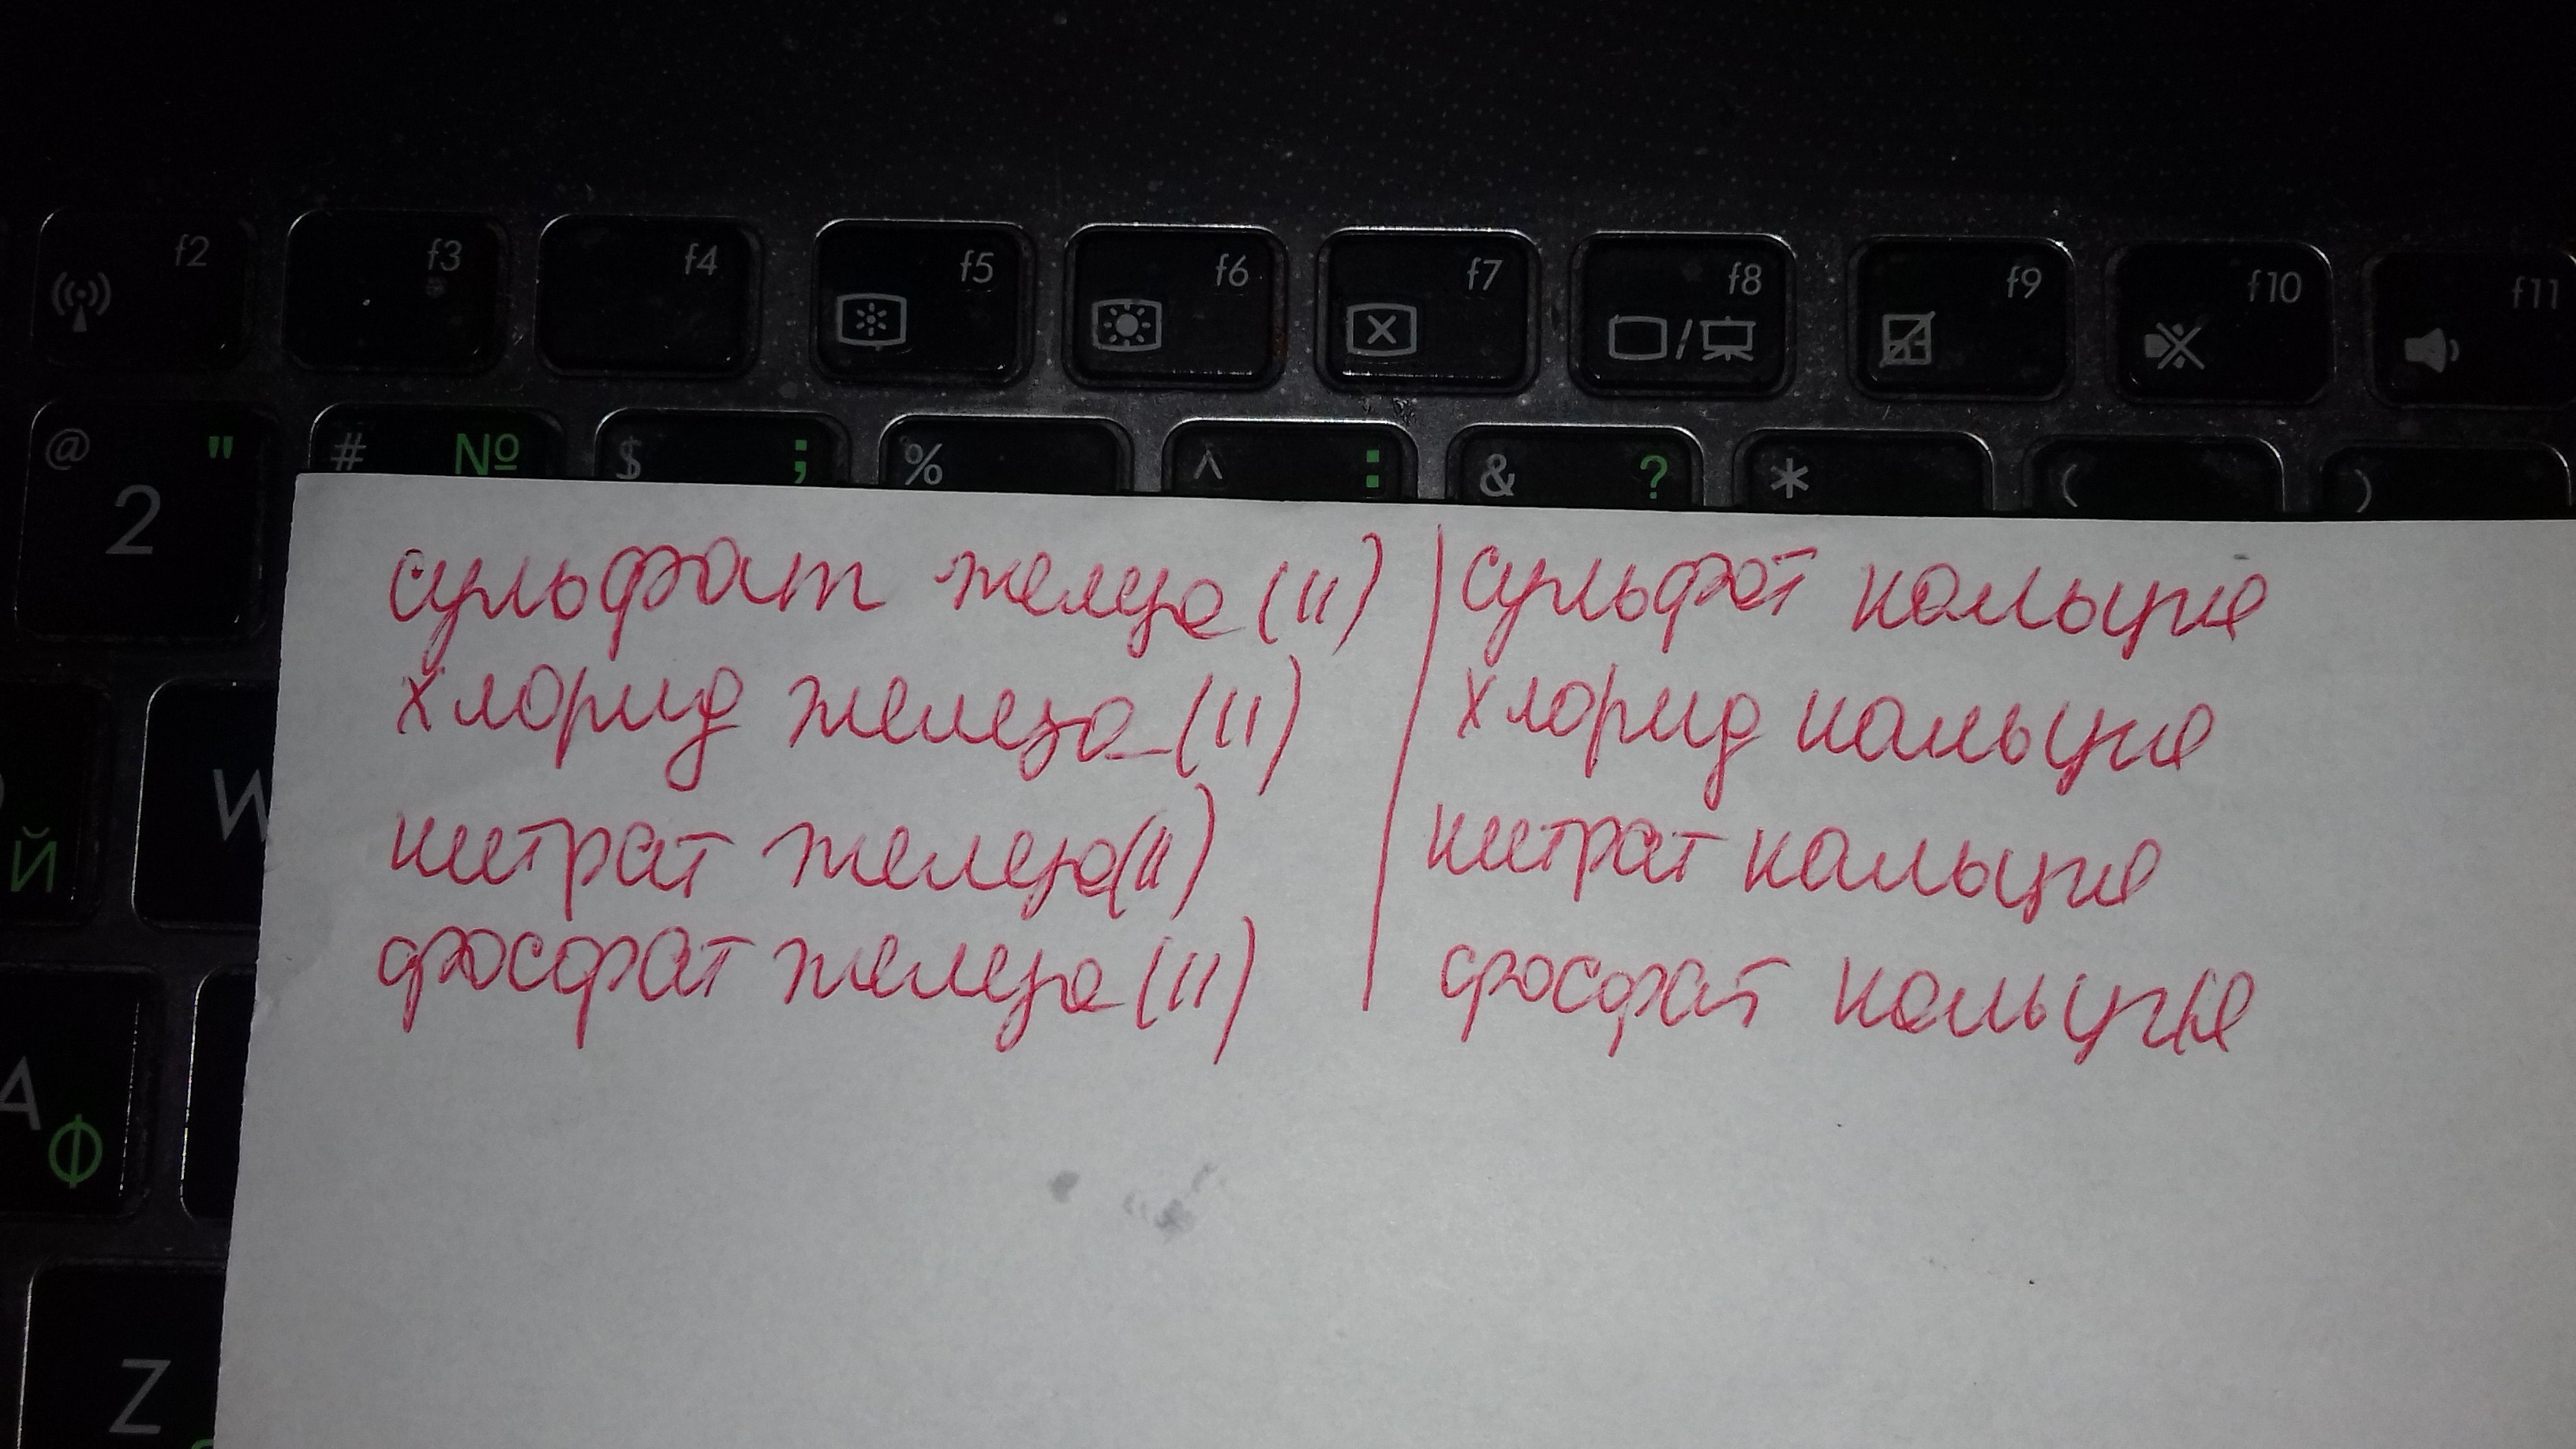 f2 f3 f4 f5 f6 f7 f8 f9 f10 f11
@ 2 " # № $ ; % ^ : & ? * ( )
сульфат железа (II) | сульфат кальция
хлорид железа (II) | хлорид кальция
W
нитрат железа (II) | нитрат кальция
Й
фосфат железа (II) | фосфат кальция
A Ф
Z